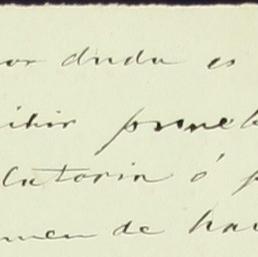 or duda es
ibir prome
latoria ó p
men de hac